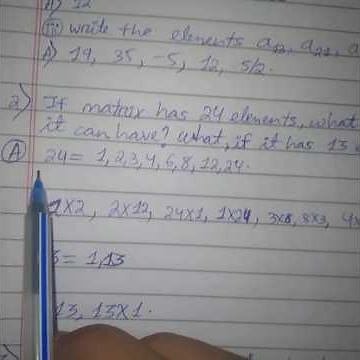 A) 12
(iii) write the elements a13, a21, a
A) 19, 35, -5, 12, 5/2.
2) If matrix has 24 elements, what
it can have? what, if it has 13
(A) 24 = 1,2,3,4,6,8,12,24.
1X2, 2X12, 24X1, 1X24, 3X8, 8X3, 4X
= 1,13
13, 13X1.